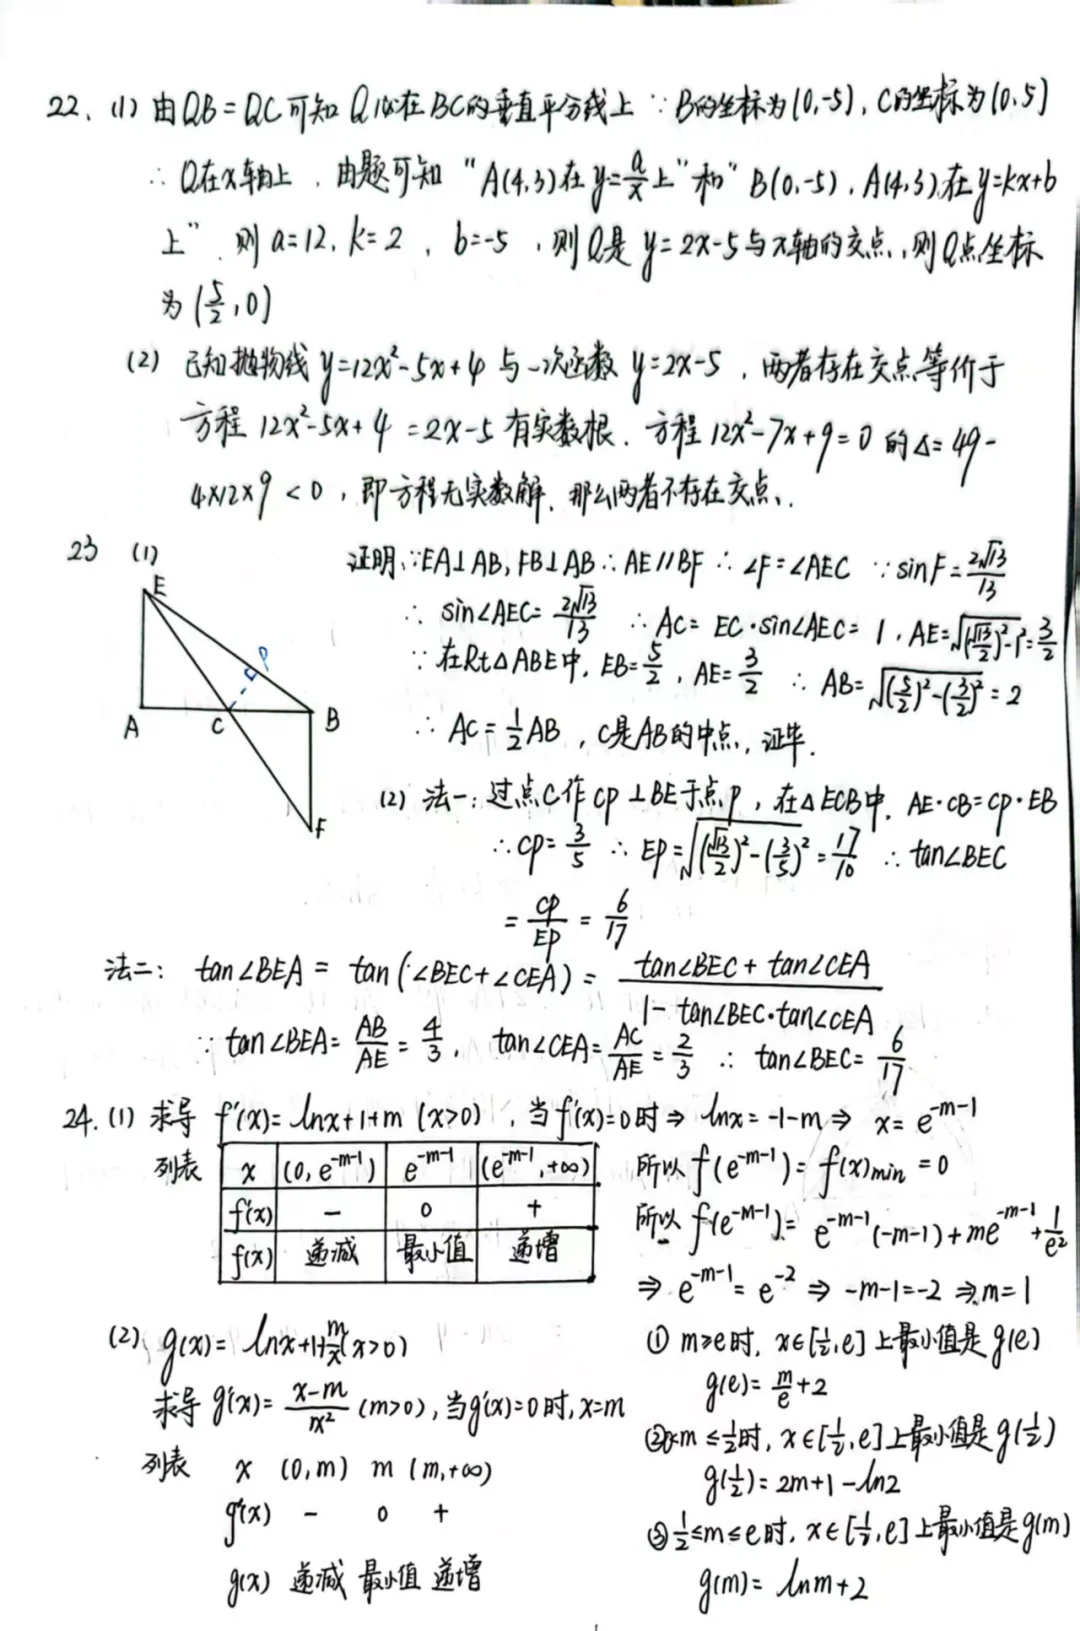 22. (1) 由QB=QC可知 Q必在BC的垂直平分线上 ∵ B的坐标为(0,-5), C的坐标为(0,5)
∴ Q在x轴上, 由题可知 "A(4,3)在y=a/x上"和"B(0,-5), A(4,3)在y=kx+b
上". 则a=12, k=2, b=-5, 则Q是 y=2x-5与x轴的交点, 则Q点坐标
为(5/2,0)
(2) 已知抛物线y=12x²-5x+4与一次函数y=2x-5, 两者存在交点等价于
方程12x²-5x+4=2x-5有实数根. 方程12x²-7x+9=0的Δ=49-
4×12×9<0, 即方程无实数解, 那么两者不存在交点.
23 (1)
证明: ∵EA⊥AB, FB⊥AB ∴AE//BF ∴∠F=∠AEC ∵sinF=2√13/13
∴ sin∠AEC=2√13/13 ∴ AC=EC·sin∠AEC=1, AE=√((√13/2)²-1²)=3/2
∵在Rt△ABE中, EB=5/2, AE=3/2 ∴ AB=√((5/2)²-(3/2)²)=2
∴ AC=1/2AB, C是AB的中点, 证毕.
E
P
A
C
B
F
(2) 法一: 过点C作CP⊥BE于点P, 在△ECB中, AE·CB=CP·EB
∴CP=3/5 ∴EP=√((√13/2)²-(3/5)²)=17/10 ∴tan∠BEC
=CP/EP=6/17
法二: tan∠BEA=tan(∠BEC+∠CEA)=(tan∠BEC+tan∠CEA)/(1-tan∠BEC·tan∠CEA)
∵tan∠BEA=AB/AE=4/3, tan∠CEA=AC/AE=2/3 ∴ tan∠BEC=6/17
24. (1) 求导 f'(x)=lnx+1+m (x>0), 当f'(x)=0时⇒ lnx=-1-m⇒ x=e^(-m-1)
列表
x (0,e^(-m-1)) e^(-m-1) (e^(-m-1),+∞)
f'(x) - 0 +
f(x) 递减 最小值 递增
所以f(e^(-m-1))=f(x)min=0
所以 f(e^(-m-1))=e^(-m-1)(-m-1)+me^(-m-1)+1/e²
⇒ e^(-m-1)=e^(-2) ⇒ -m-1=-2 ⇒m=1
(2) g(x)=lnx+1+m/x(x>0)
求导 g'(x)=(x-m)/x² (m>0), 当g'(x)=0时, x=m
列表 x (0,m) m (m,+∞)
g'(x) - 0 +
g(x) 递减 最小值 递增
① m≥e时, x∈[1/2,e]上最小值是g(e)
g(e)=m/e+2
②0<m≤1/2时, x∈[1/2,e]上最小值是g(1/2)
g(1/2)=2m+1-ln2
③1/2≤m≤e时, x∈[1/2,e]上最小值是g(m)
g(m)=lnm+2